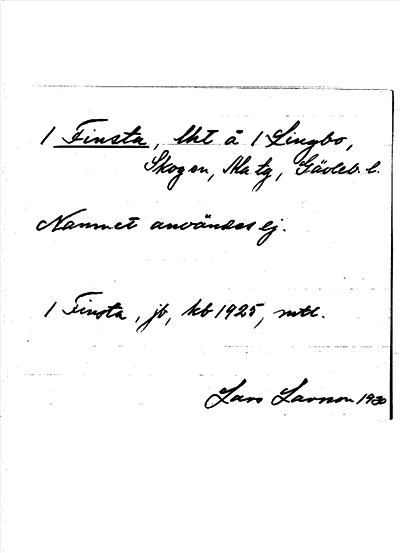 1 Finsta, lht å 1 Lingbo,
Skogen, Matg, Gävleb. l.
Namnet användes ej.
1 Finsta, jb, kb 1925, mtl.
Lars Larsson 1930